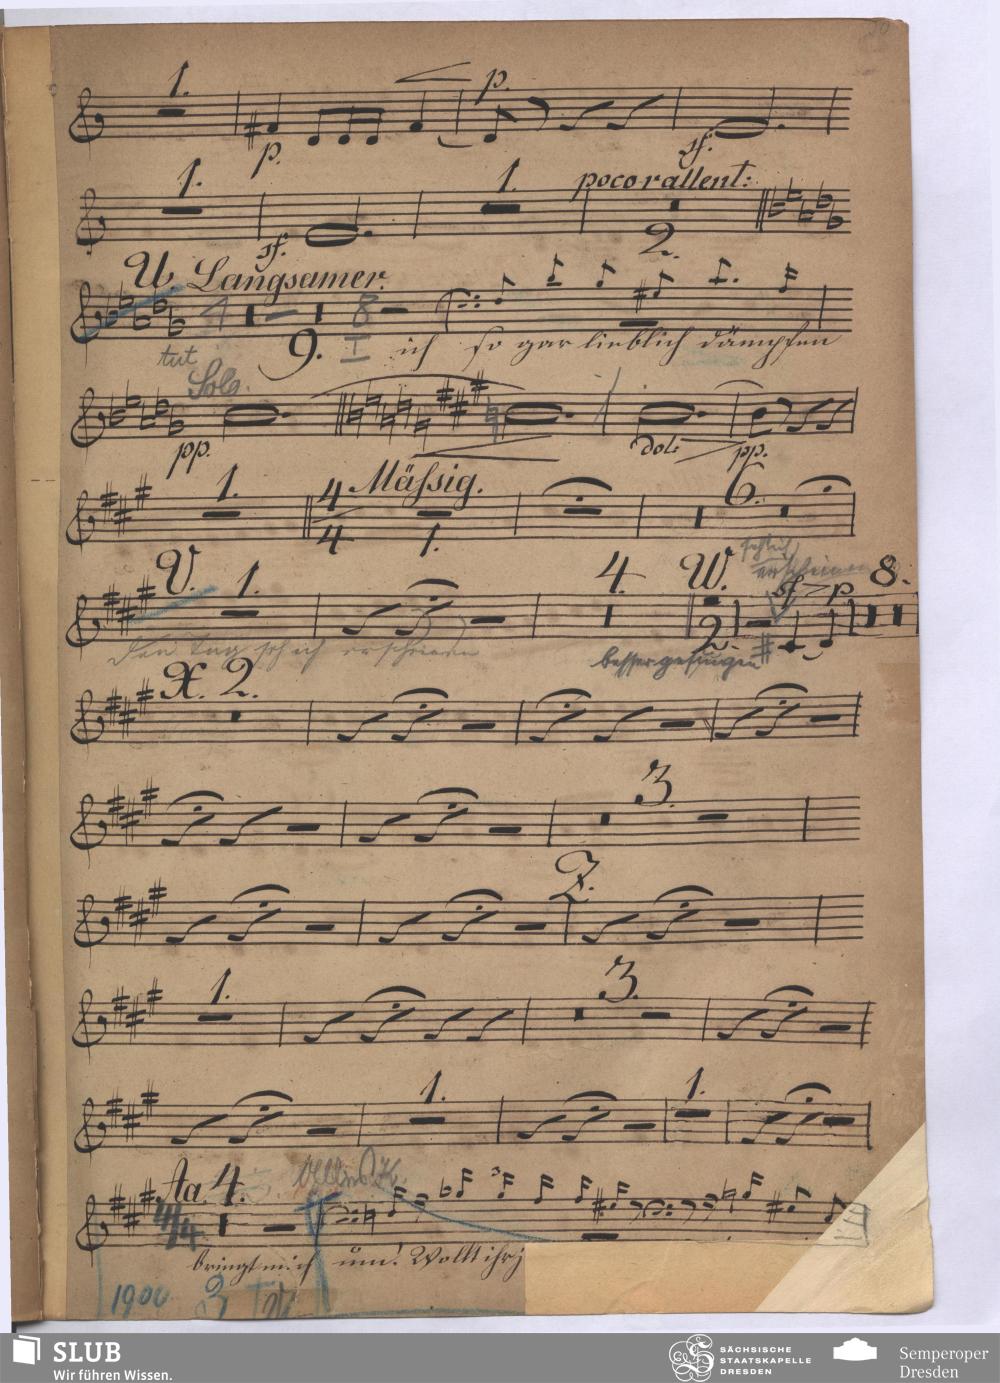 1. p. p. sf.
1. sf. 1. poco rallent: 2.
U. Langsamer.
4 8
9. ich so gar lieblich dämpfen
tut
Solo.
pp. dol: pp.
1. 4 4 Mäßig. 1. 6.
V. 1. 4. W. 2. sf p. 8.
den Tag seh ich erscheinen
erscheinen
besser gesungen
X. 2.
3.
Z.
1. 3.
1. 1.
Aa. 4. 3
4/4
bringt mich um! Wollt ihr
1900
SLUB
Wir führen Wissen.
SÄCHSISCHE
STAATSKAPELLE
DRESDEN
Semperoper
Dresden